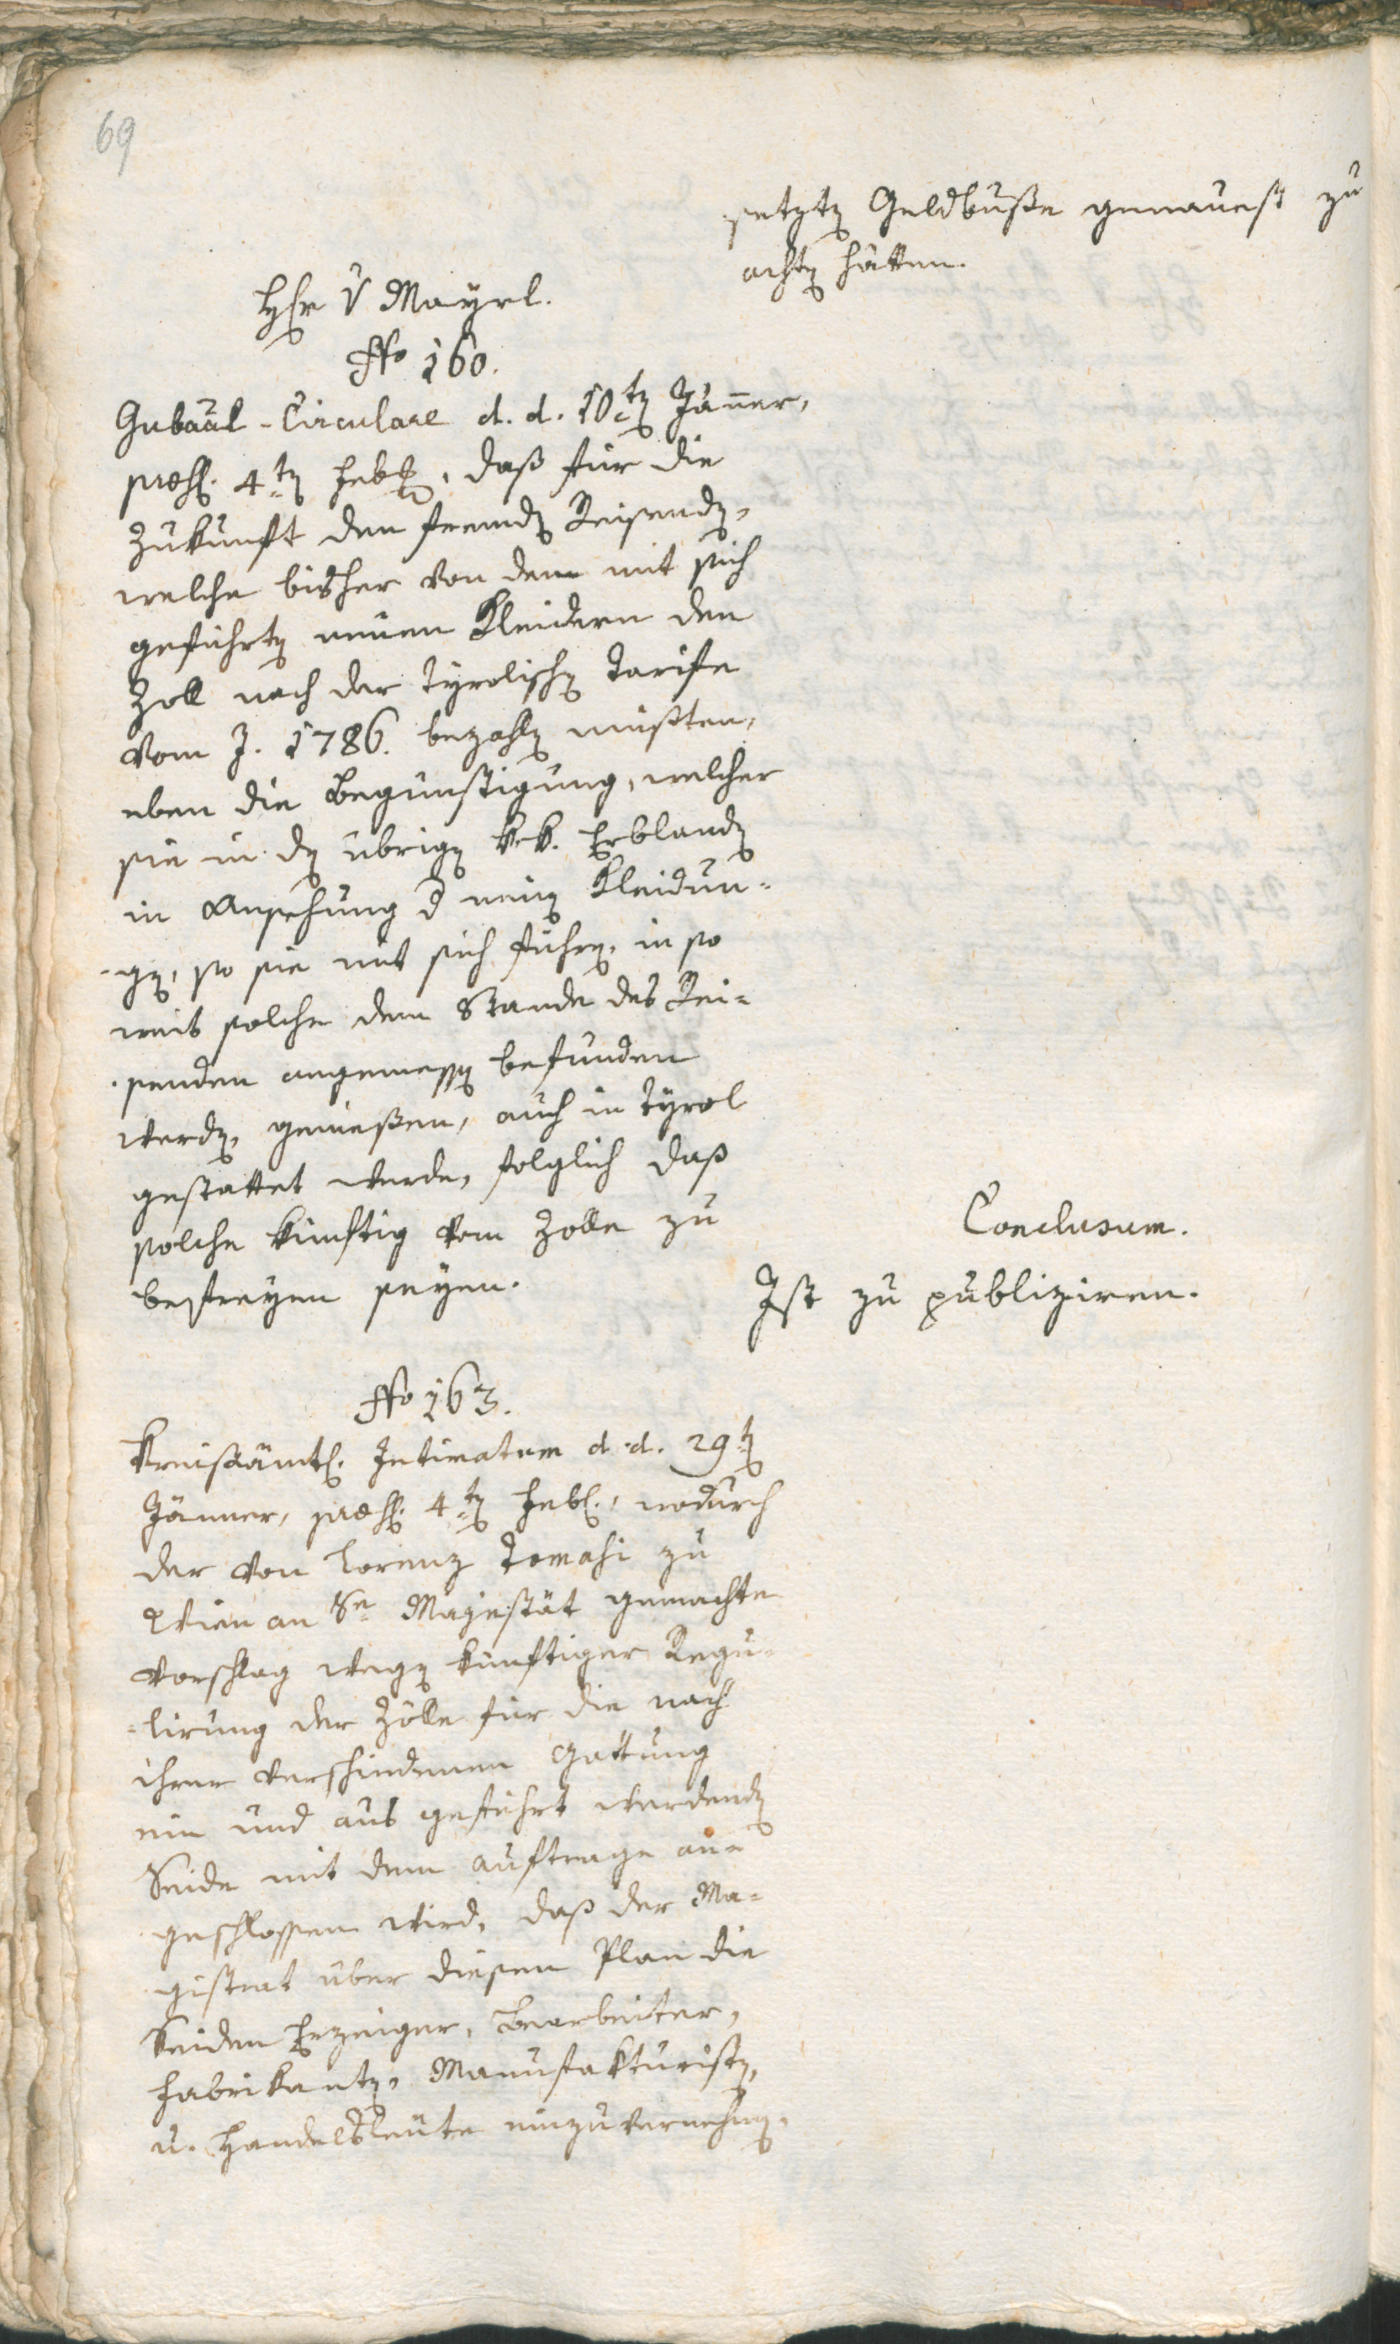 69
setzten Geldbuße genauest zu
achten hätten.
Hr v Mayrl.
No 160.
Gubaal-Circulare d. d. 10ten Jänner,
præs. 4ten Febr, daß für die
Zukunft den fremden Reisenden,
welche bisher von den mit sich
geführten neuen Kleidern den
Zoll nach der tyrolischen Tarife
vom J. 1786. bezahlen mußten,
eben die Begünstigung, welcher
sie in den übrigen k.k. Erblanden
in Ansehung d neuen Kleidun-
-gen, so sie mit sich führen, in so
weit solche dem Stande des Rei-
senden angemessen befunden
werden, genießen, auch in Tyrol
gestattet werde, folglich daß
solche künftig vom Zolle zu
befreyen seyen.
Conclusum.
Ist zu publiziren.
No 163.
Kreisämtl. Intimatum d. d. 29ten
Jänner, præs. 4ten Febr., wodurch
der von Lorenz Tomasi zu
Wien an Se Majestät gemachte
Vorschlag wegen künftiger Regu-
-lirung der Zölle für die nach
ihrer verschiedenen Gattung
ein und aus geführt werdenden
Seide mit dem Auftrage an-
geschlossen wird, daß der Ma-
gistrat über diesen Plan die
Seiden Erzeiger, Bearbeiter,
Fabrikanten, Manufakturisten,
u. Handelsleute einzuvernehmen,